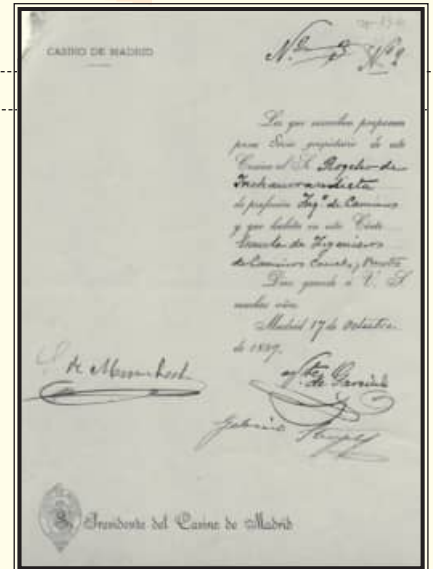 CASINO DE MADRID
Nº 2
Los que suscriben proponen
para Socio propietario de este
Casino al Sr. Rogelio de
Inchaurrandieta
de profesión Ingº de Caminos
y que habita en esta Corte
Escuela de Ingenieros
de Caminos Canales y Puertos
Dios guarde á V. S.
muchos años.
Madrid 17 de Octubre
de 1887.
de
Gabriel
Sr. Presidente del Casino de Madrid